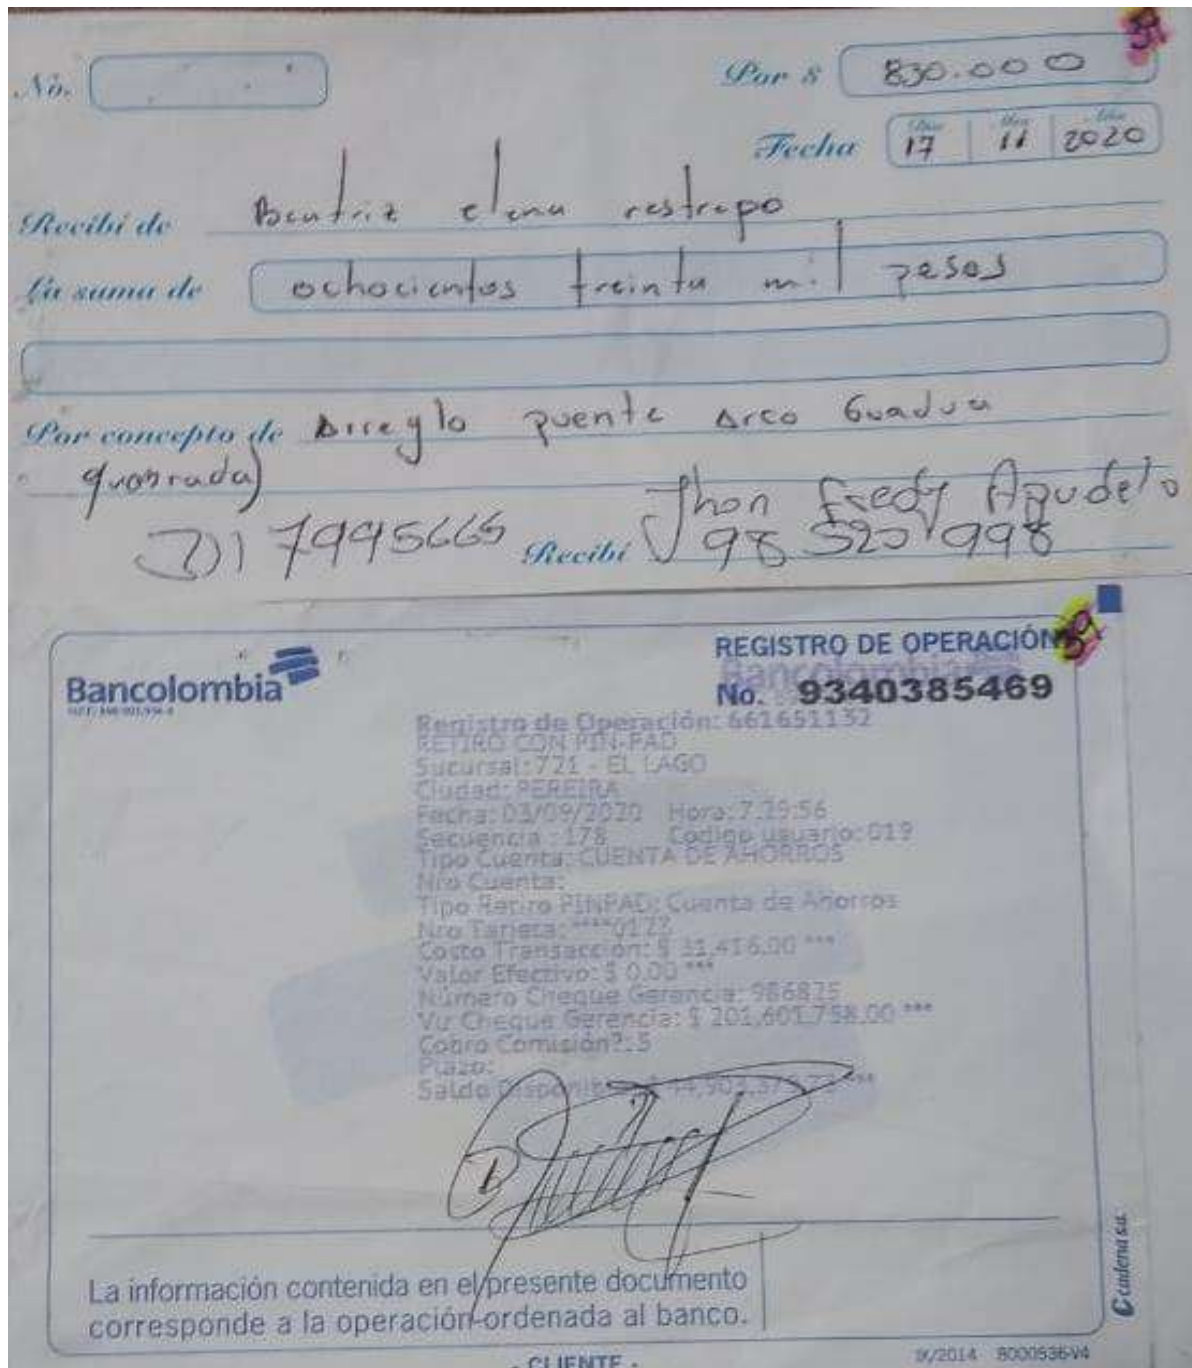 No.
Por $ 830.000
Fecha Día 17 Mes 11 Año 2020
Recibí de Beatriz elena restrepo
La suma de ochocientos treinta mil pesos
Por concepto de Arreglo puente Arco Guadua
quebrada)
Jhon Fredy Agudelo
Recibí 98 520 998
Bancolombia
REGISTRO DE OPERACIÓN
No. 9340385469
Registro de Operación: 661651132
RETIRO CON PIN-PAD
Sucursal: 721 - EL LAGO
Ciudad: PEREIRA
Fecha: 03/09/2020 Hora: 7:29:56
Secuencia : 178 Codigo usuario: 019
Tipo Cuenta: CUENTA DE AHORROS
Nro Cuenta:
Tipo Retiro PINPAD: Cuenta de Ahorros
Nro Tarjeta: ****0177
Costo Transacción: $ 31,416.00 ***
Valor Efectivo: $ 0.00 ***
Número Cheque Gerencia: 986825
Vlr Cheque Gerencia: $ 201,601,758.00 ***
Cobro Comisión?: S
Plazo:
Saldo Disponible: $
La información contenida en el presente documento
corresponde a la operación ordenada al banco.
- CLIENTE -
IX/2014 8000536-V4
Cadena s.a.